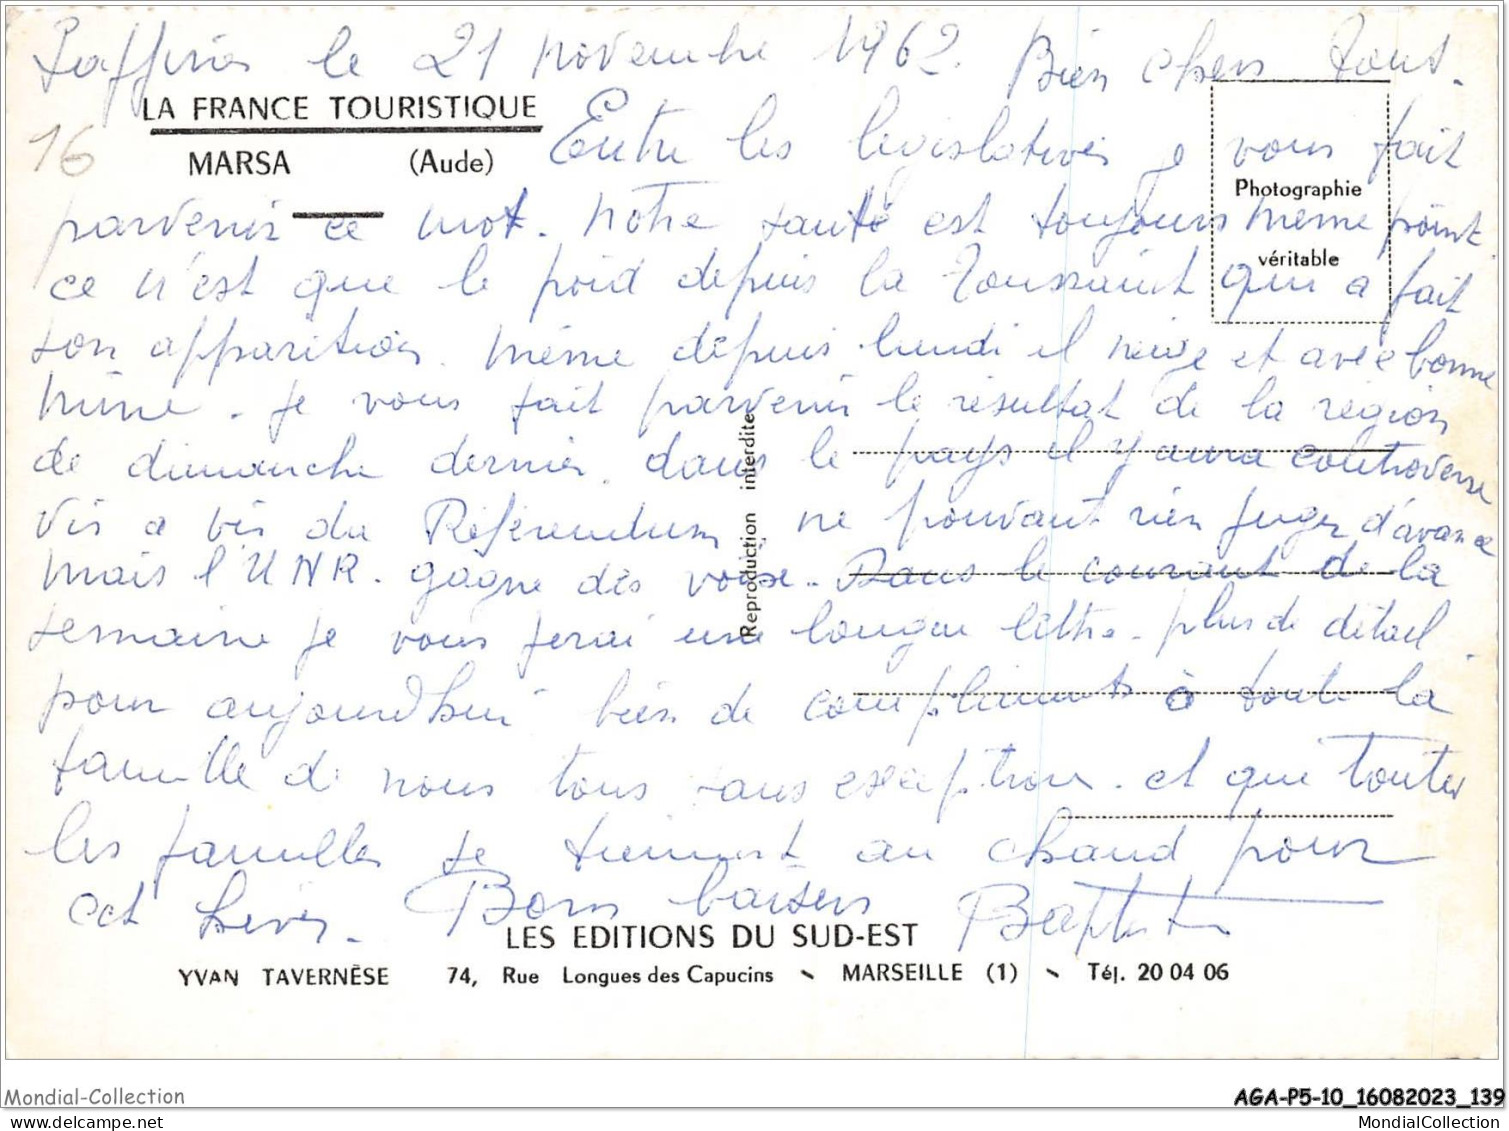 le 21 novembre 1962. Bien chers tous.
LA FRANCE TOURISTIQUE
16
MARSA (Aude)
Entre les législatives je vous fait
Photographie
véritable
parvenir ce mot. Notre santé est toujours même point
ce n'est que le poid depuis la Toussaint qui a fait
son apparition. Même depuis lundi il neige et avec bonne
mine. Je vous fait parvenir le résultat de la région
de dimanche dernier. dans le pays il y aura controverse
vis a vis du Référendum ne pouvant rien juger d'avance
mais l'UNR. gagne des voix. Dans le courant de la
semaine je vous ferai une longue lettre. plus de détail
pour aujourd'hui bien de compliments à toute la
famille de nous tous sans exception. et que toutes
les familles se tiennent au chaud pour
cet hiver. Bons baisers Baptistin
Reproduction interdite
LES EDITIONS DU SUD-EST
YVAN TAVERNÈSE 74, Rue Longues des Capucins - MARSEILLE (1) - Tél. 20 04 06
Mondial-Collection
AGA-P5-10_16082023_139
MondialCollection